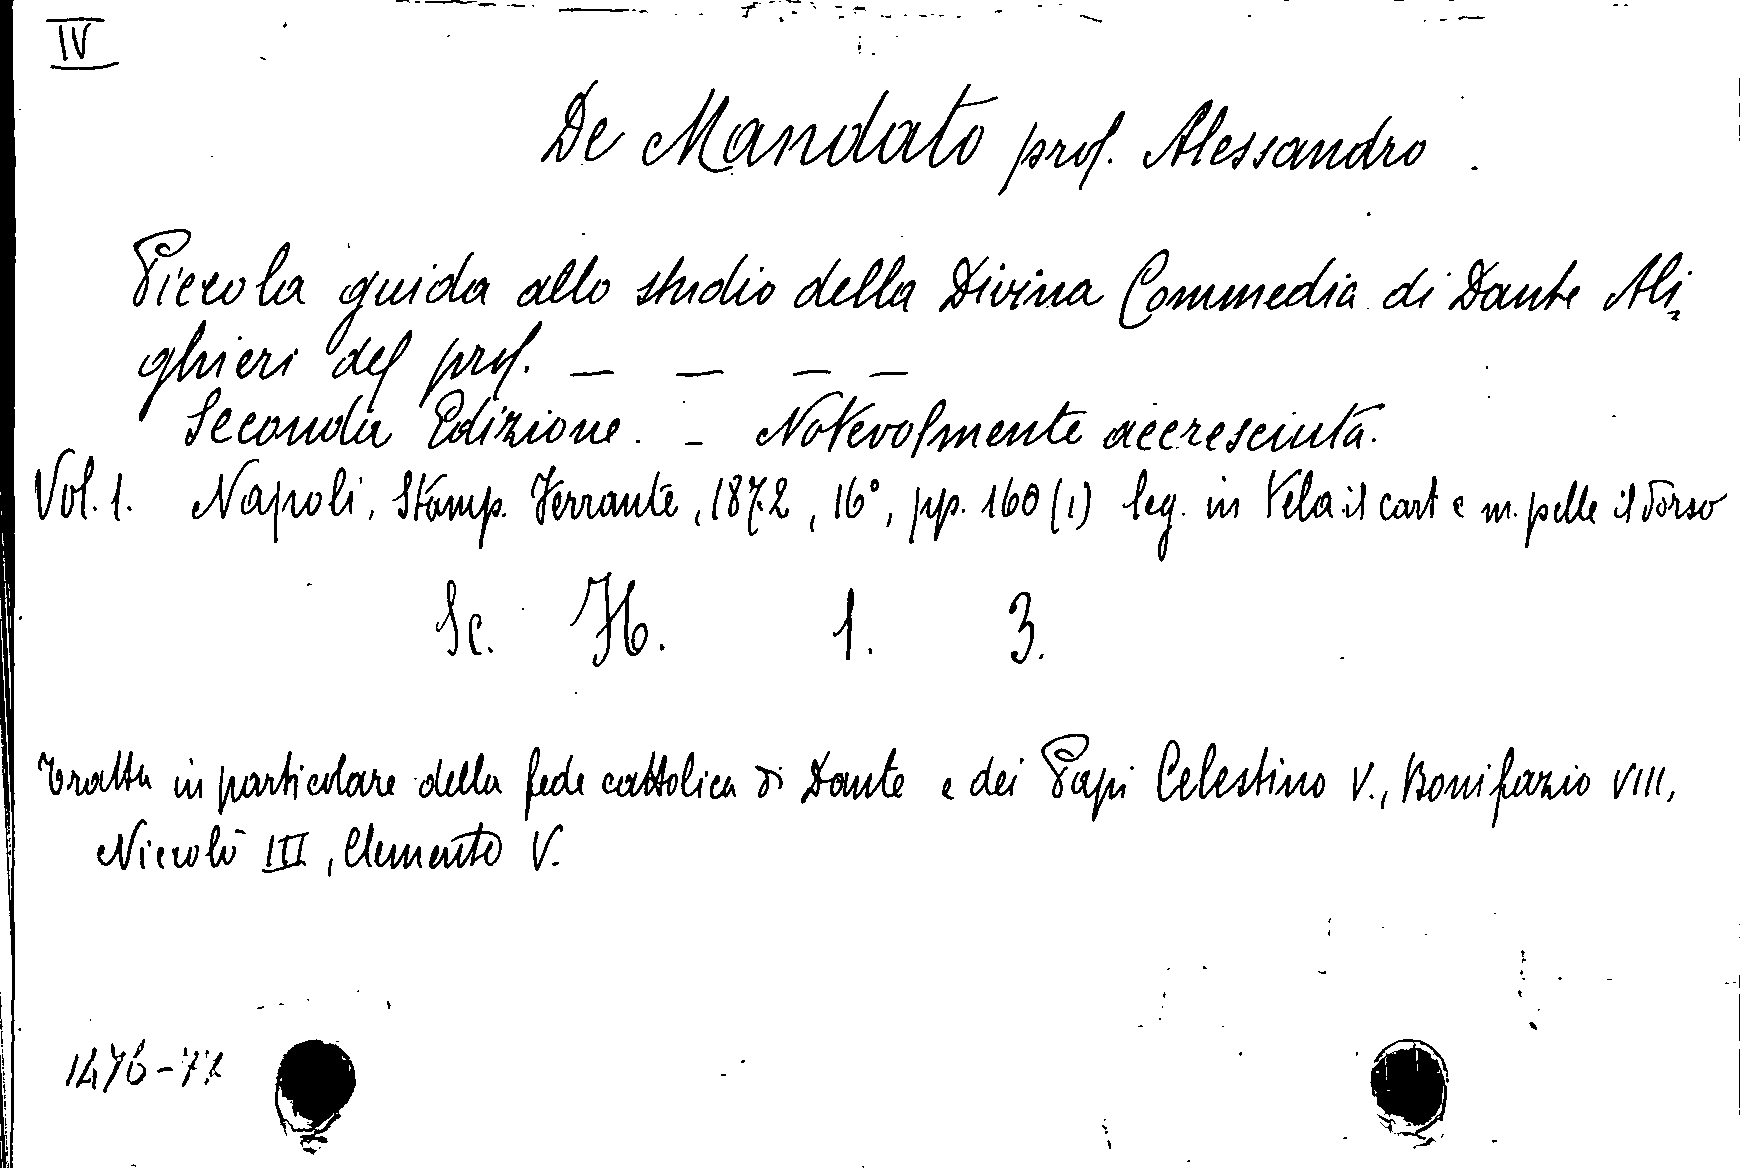 IV
De Mandato prof. Alessandro.
Piccola guida allo studio della Divina Commedia di Dante Ali-
ghieri del prof. — — — —
Seconda Edizione. - Notevolmente accresciuta.
Vol. 1. Napoli, Stamp. Ferrante, 1872, 16°, pp. 160 (1) leg. in tela il cart e m. pelle il dorso
Sc. H. 1. 3.
Tratta in particolare della fede cattolica di Dante e dei Papi Celestino V., Bonifazio VIII,
Niccolò III, Clemente V.
1476-77